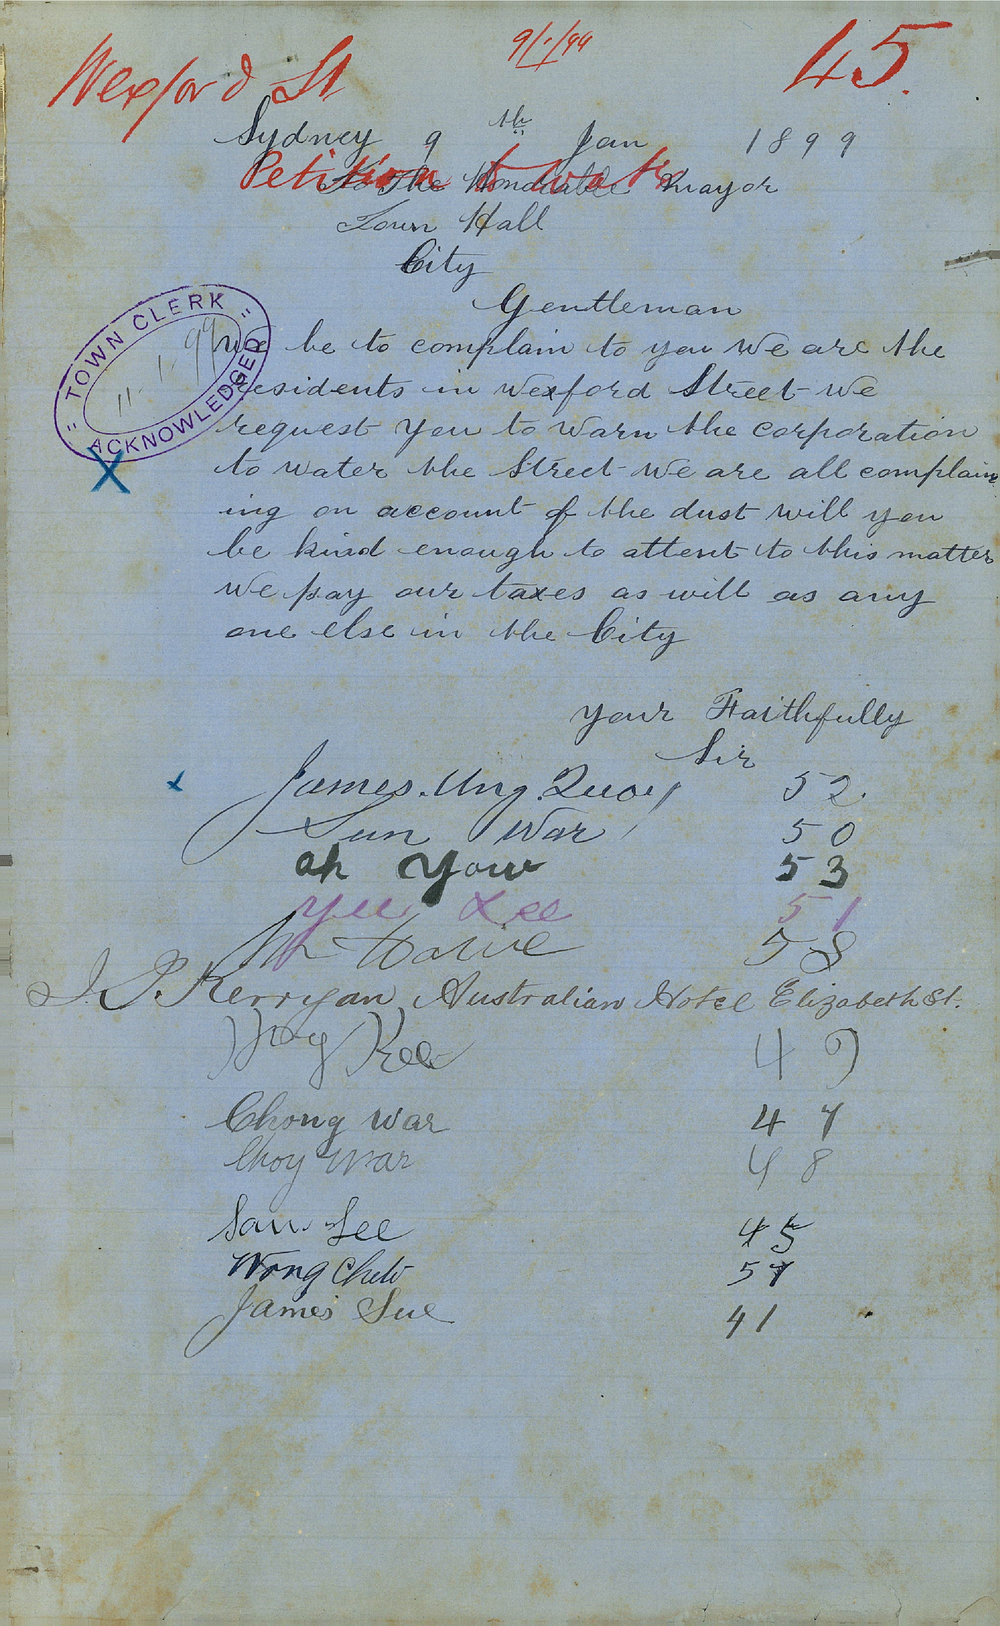 Wexford St
9/1/99
45.
Sydney 9th Jan 1899
Petition to water
To The Honorable Mayor
Town Hall
City
Gentleman
"TOWN CLERK"
11.1.99
ACKNOWLEDGED
We be to complain to you We are the
residents in Wexford Street We
request you to Warn the corporation
to water the Street We are all complain
ing on account of the dust will you
be kind enough to attent to this matter
We pay our taxes as will as any
one else in the City
your Faithfully
Sir
X
x James. Ung. Quoy 52.
Sun War 50
ah Yow 53
Yee Lee 51
58
J. P. Kerrigan Australian Hotel Elizabeth St.
Hing Kee 49
Chong War 47
Choy War 48
Sam Lee 45
Wong Chew 57
James Sue 41